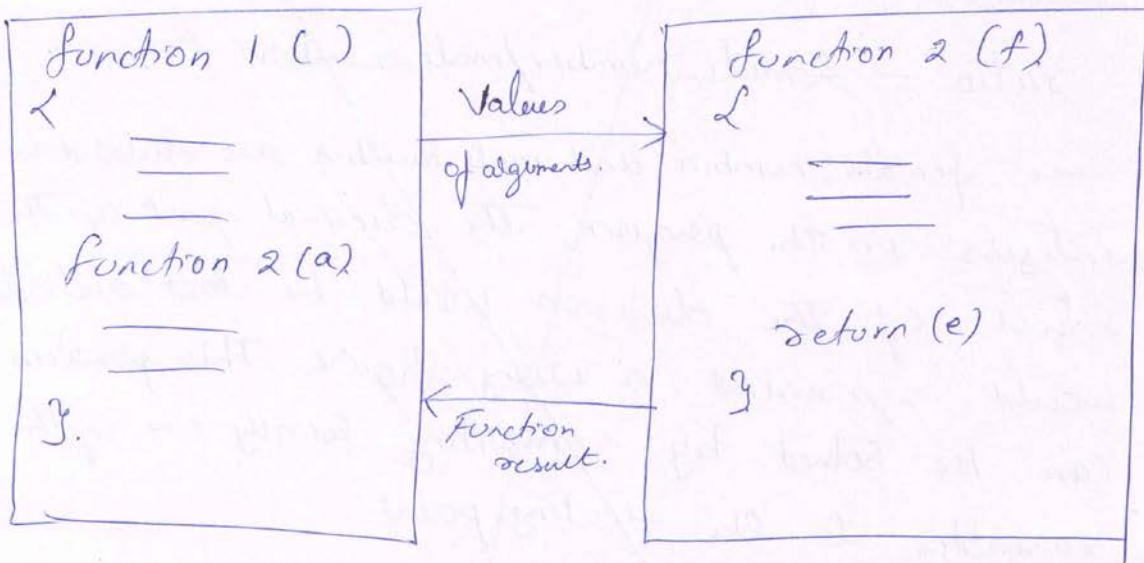 function 1 ( )
{
function 2 (a)
}.
Values
of alguments.
Function
result.
function 2 (f)
{
return (e)
}